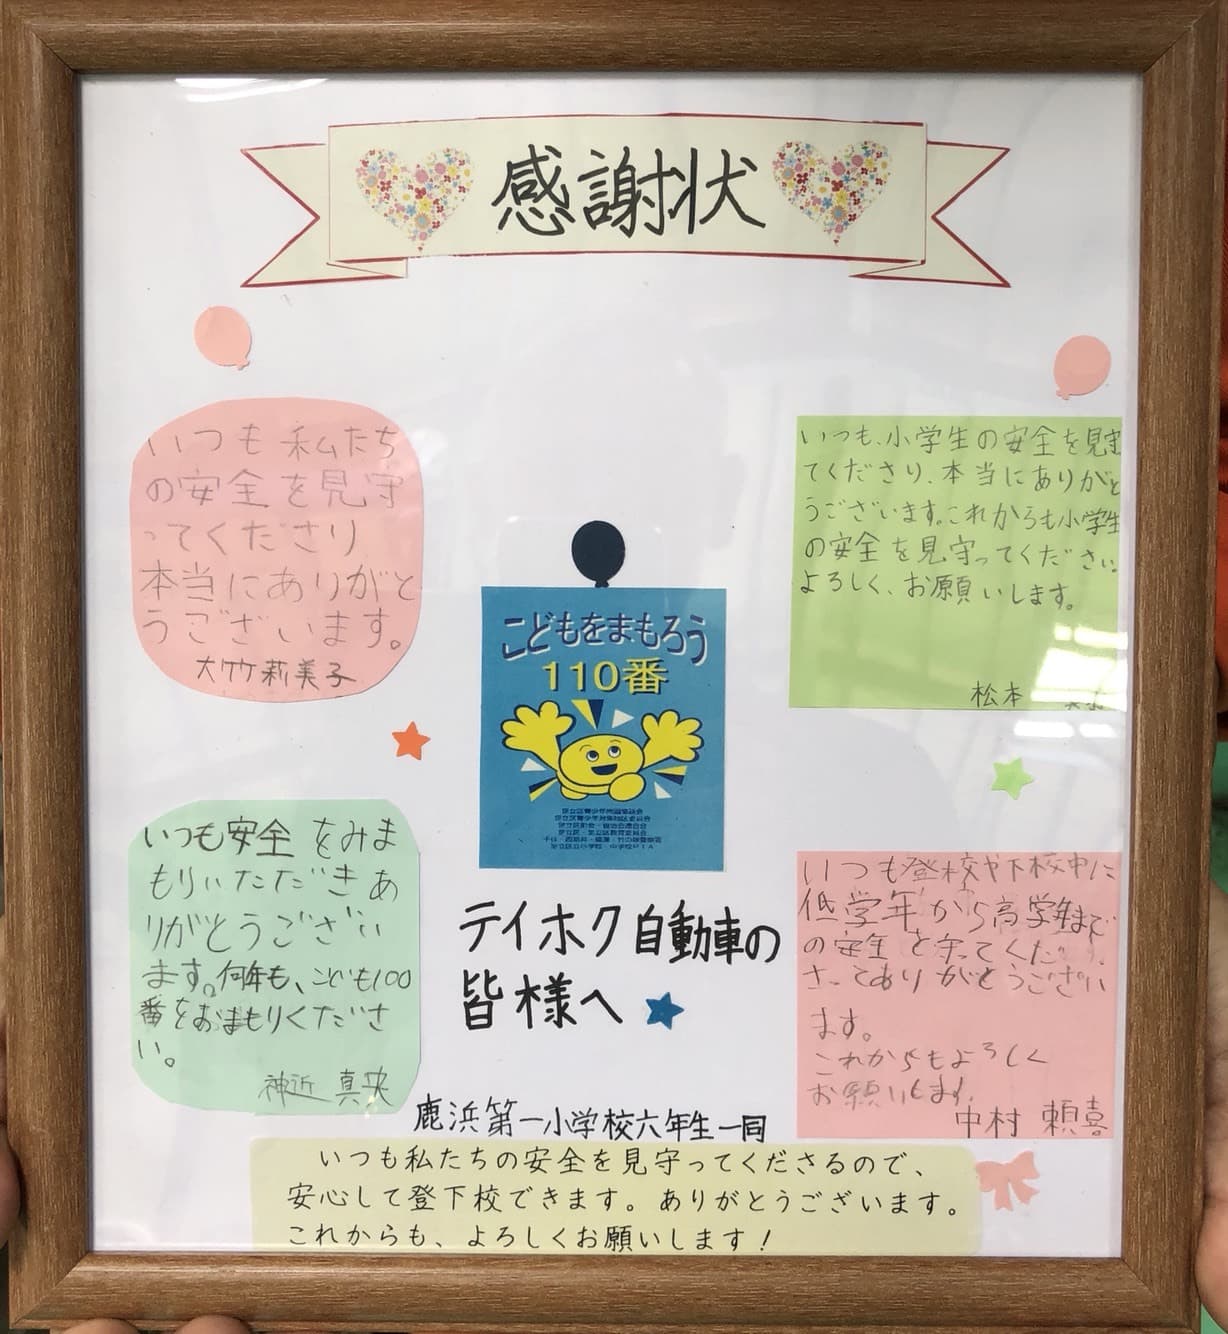 感謝状
いつも私たち
の安全を見守
ってくださり
本当にありがと
うございます。
大竹莉美子
いつも、小学生の安全を見守
てくださり、本当にありがと
うございます。これからも小学生
の安全を見守ってください。
よろしく、お願いします。
松本
こどもをまもろう
110番
いつも安全をみま
もりいただきあ
りがとうござい
ます。何年も、こども100
番をおまもりくださ
い。
神近 真央
テイホク自動車の
皆様へ
いつも登校や下校中に
低学年から高学年まで
の安全を守ってくだ
さってありがとうござい
ます。
これからもよろしく
お願いします。
中村 頼喜
鹿浜第一小学校六年生一同
いつも私たちの安全を見守ってくださるので、
安心して登下校できます。ありがとうございます。
これからも、よろしくお願いします！